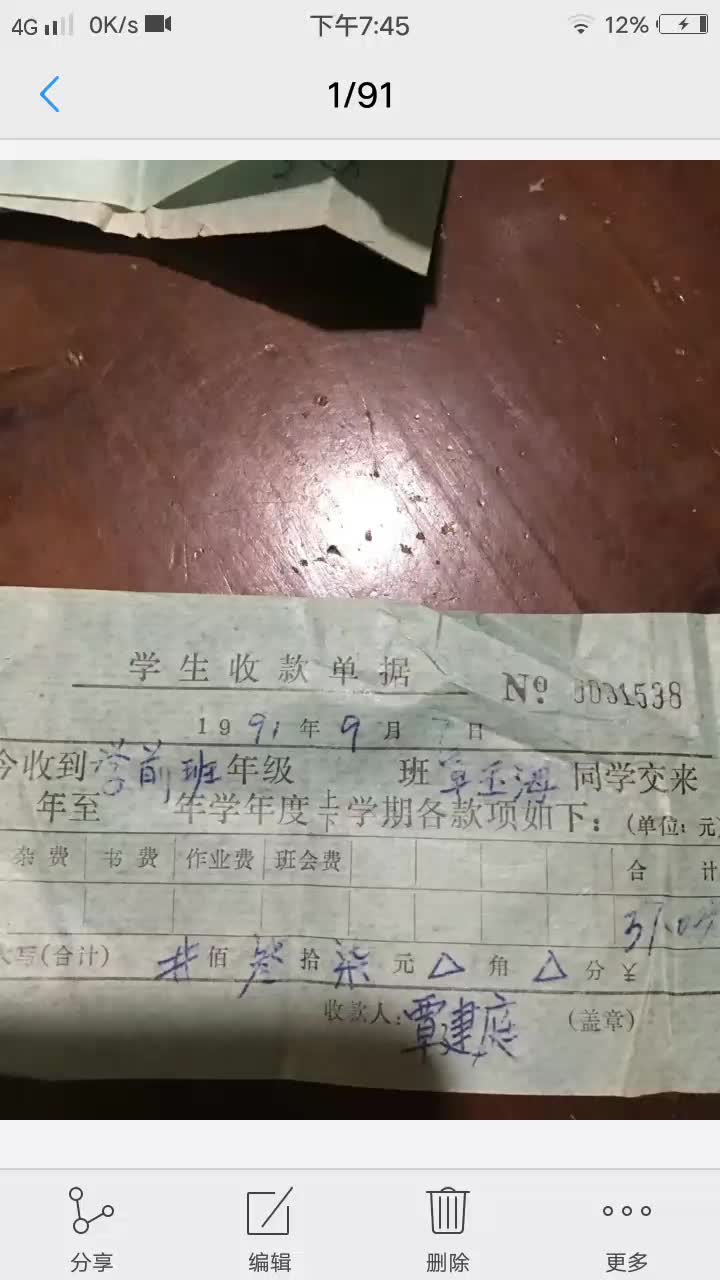 4G 0K/s 下午7:45 12%
1/91
学生收款单据
No. 0031538
1991年9月 日
今收到学前班年级 班 同学交来
年至 年学年度上下学期各款项如下：(单位：元
杂费 书费 作业费 班会费 合计
大写(合计) 佰叁拾柒元△角△分 ¥
收款人：覃建庭 (盖章)
分享 编辑 删除 更多